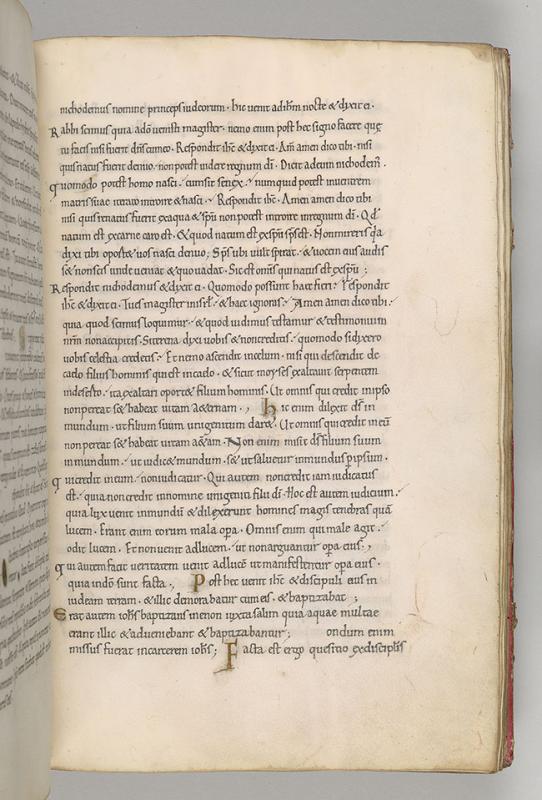 nichodemus nomine princeps iudeorum · hic uenit ad ihm nocte & dixit ei ·
Rabbi scimus quia a dō uenisti magister · nemo enim potest hęc signa facere quę
tu facis nisi fuerit dn̄s cum eo · Respondit ihc & dixit ei · Am̄ amen dico tibi · nisi
quis natus fuerit denuo · non potest uidere regnum dī · Dicit ad eum nichodem̄ ·
Quomodo potest homo nasci · cum sit senex · numquid potest in uentrem
matris suae iterato introire & nasci · Respondit ihc · Am̄ amen dico tibi
nisi quis renatus fuerit ex aqua & sp̄u non potest introire in regnum dī · Qd̄
natum est ex carne caro est · & quod natum est ex sp̄u sp̄s est · Non mireris q̄a
dixi tibi oport& uos nasci denuo ; Sp̄s ubi uult spirat · & uocem eius audis
s& nescis unde ueniat & quo uadat · Sic est omīs qui natus est ex sp̄u ;
Respondit nichodemus & dixit ei · Quomodo possunt haec fieri · Respondit
ihc & dixit ei · Tu es magister in isrl̄ · & haec ignoras · Amen amen dico tibi ·
quia quod scimus loquimur · & quod uidimus testamur & testimonium
nr̄m non accipitis · Si terrena dixi uobis & non creditis · quomodo si dixero
uobis celestia credetis · Et nemo ascendit in celum · nisi qui descendit de
caelo filius hominis qui est in caelo · & sicut moyses exaltauit serpentem
in deserto · ita exaltari oport& filium hominis · Ut omnis qui credit in ipso
non pereat s& habeat uitam aeternam · , hic enim dilexit dſ in
mundum · ut filium suum unigenitum dar& · Ut omnis qui credit in eū
non pereat s& habeat uitam aet̄nam · Non enim misit dſ filium suum
in mundum · ut iudic& mundum · s& ut saluetur in mundus p̱ ipsum ·
Qui credit in eum · non iudicatur · Qui autem non credit iam iudicatus
est · quia non credit in nomine unigeniti filii dī · Hoc est autem iudicium ·
quia lux uenit in mundū & dilexerunt homines magis tenebras quā
lucem · Erant enim eorum mala op̄a · Omnis enim qui male agit ·
odit lucem · Et non uenit ad lucem · ut non arguantur op̄a eius · ,
Qui autem facit ueritatem uenit ad lucē ut manifestentur op̄a eius ·
quia in dō sunt facta · , Post hęc uenit ihc & discipuli eius in
iudeam terram · & illic demorabatur cum eis · & baptizabat ;
Erat autem ioh̄s baptizans in enon iuxta salim quia aquae multae
erant illic & adueniebant & baptizabantur ; ondum enim
missus fuerat in carcerem ioh̄s ; Facta est ergo questio ex discip̄lis